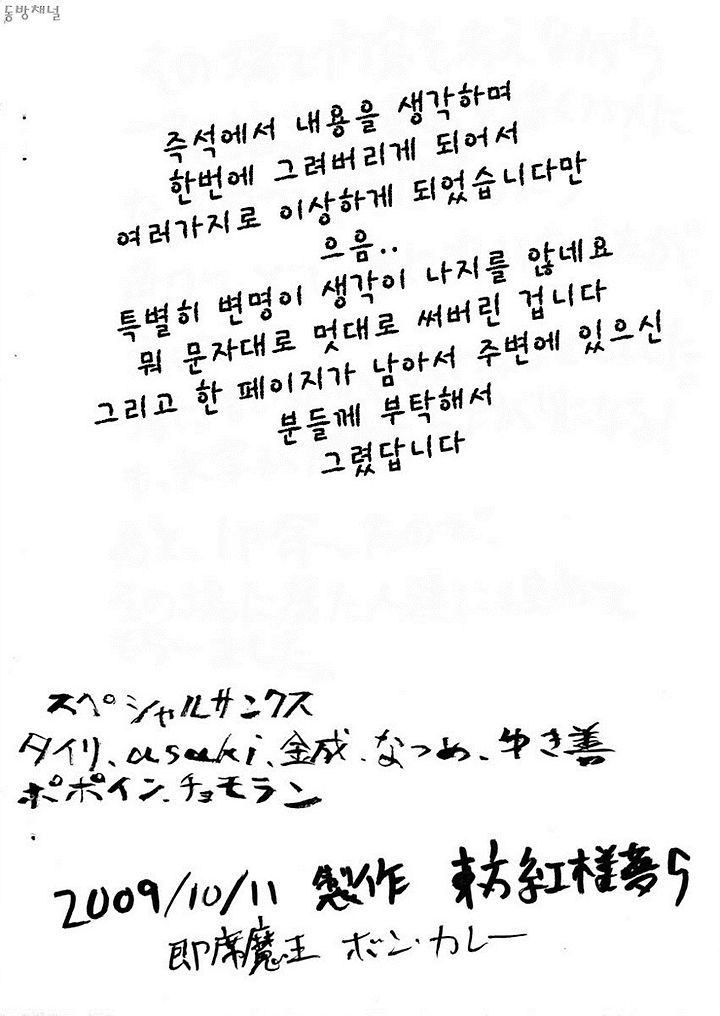 동방채널
즉석에서 내용을 생각하며
한번에 그려버리게 되어서
여러가지로 이상하게 되었습니다만
으음..
특별히 변명이 생각이 나지를 않네요
뭐 문자대로 멋대로 써버린 겁니다
그리고 한 페이지가 남아서 주변에 있으신
분들께 부탁해서
그렸답니다
スペシャルサンクス
タイリ、asuki、金成、なつめ、ゆき善
ポポイン、チョモラン
2009/10/11 製作 東方紅楼夢5
即席魔王 ボン・カレー